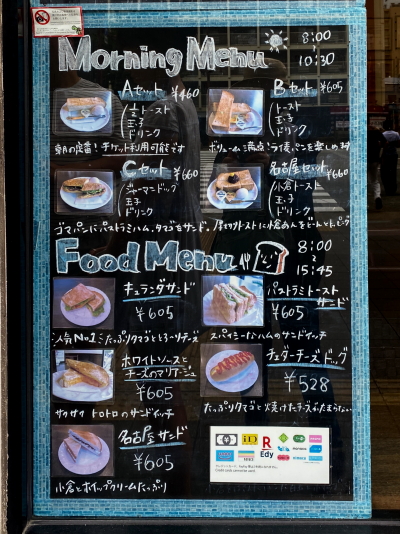 Morning Menu
8:00
〜
10:30
Aセット ¥460
½トースト
玉子
ドリンク
朝の定番！チケット利用可能です
Bセット ¥605
トースト
玉子
ドリンク
Cセット ¥660
ジャーマンドッグ
玉子
ドリンク
ゴマパンにパストラミハム、タマゴをサンド。
名古屋セット ¥660
小倉トースト
玉子
ドリンク
厚切りトーストに小倉あんをどーんとトッピング
Food Menu
8:00
〜
15:45
キュランダサンド
¥605
人気No1 たっぷりタマゴととろーりチーズ
パストラミトースト
サンド
¥605
スパイシーなハムのサンドイッチ
ホワイトソースと
チーズのマリアージュ
¥605
サクサク トロトロのサンドイッチ
チェダーチーズドッグ
¥528
たっぷりタマゴと焼けたチーズがたまらない
名古屋サンド
¥605
小倉とホイップクリームたっぷり
iD
R
Edy